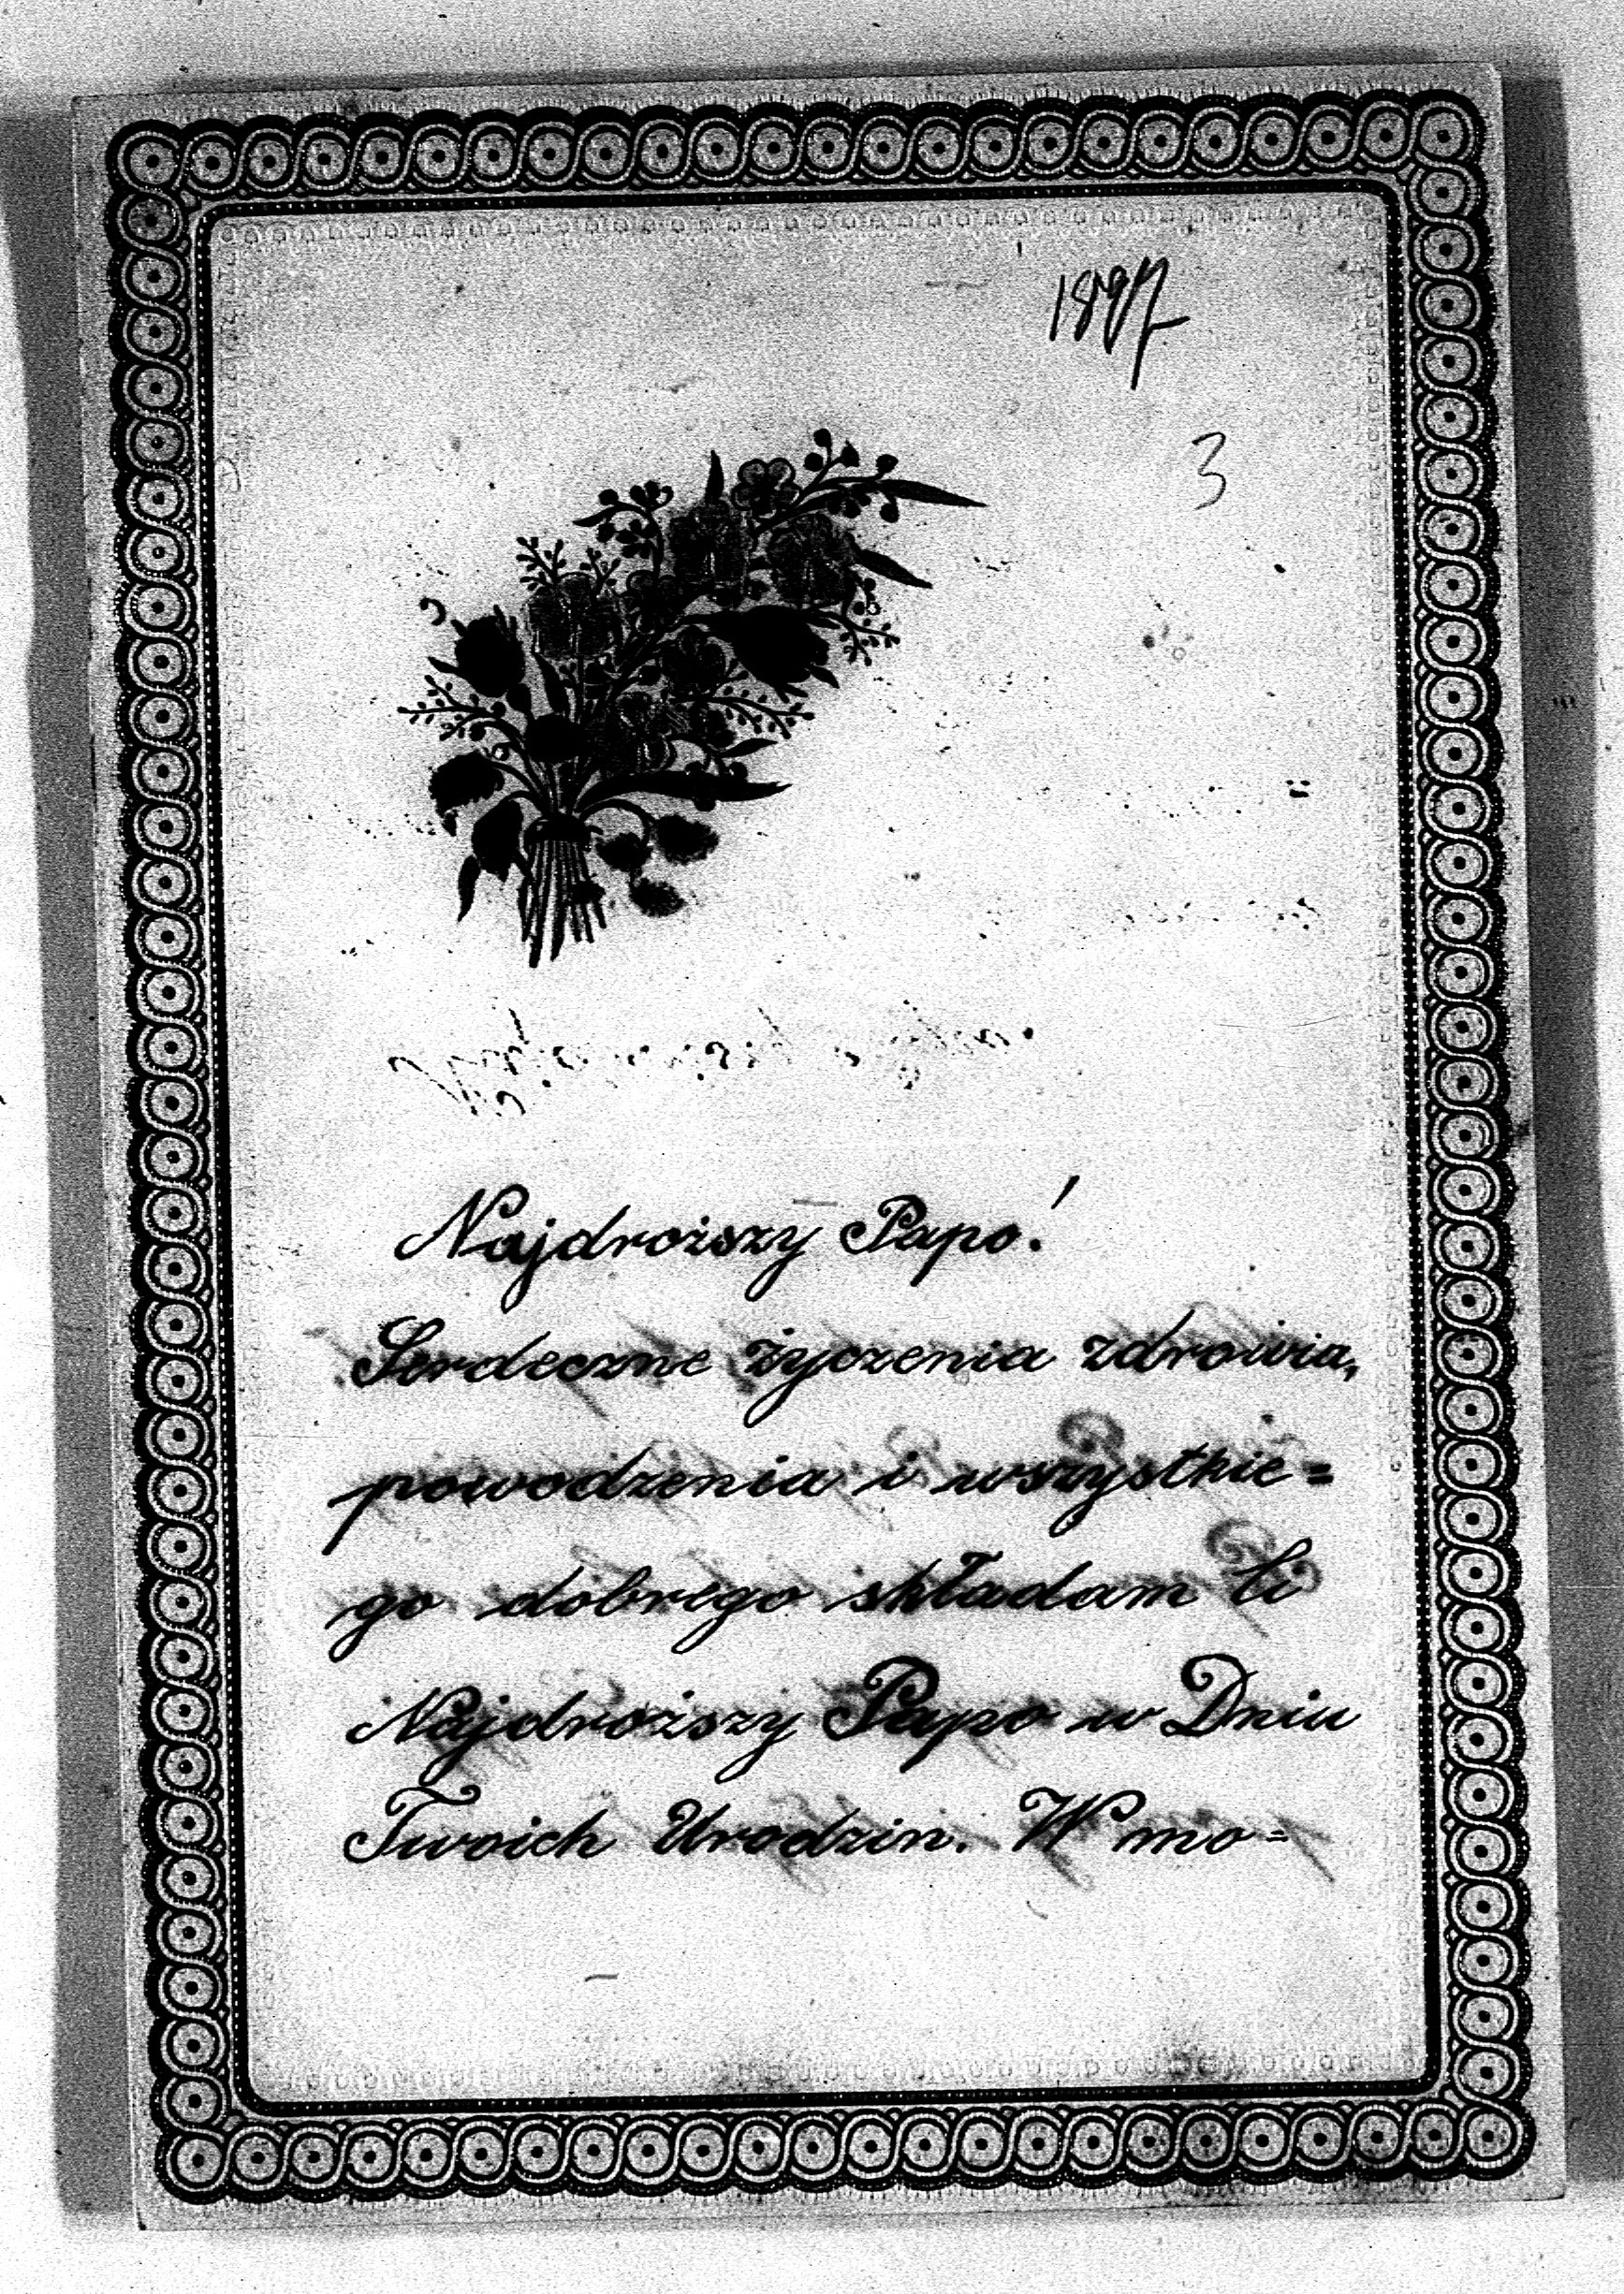 1897
3
Najdroższy Papo!
Serdeczne życzenia zdrowia,
powodzenia i wszystkie=
go dobrego składam Ci
Najdroższy Papo w Dniu
Twoich Urodzin. W mo=